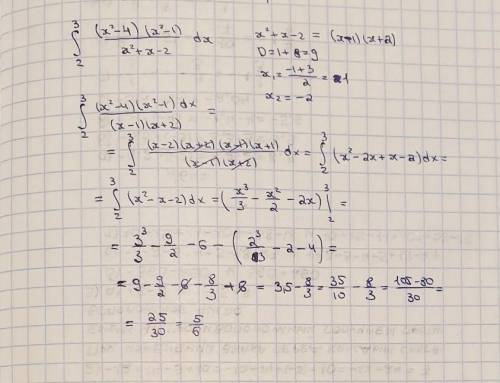 ∫₂³ (x²-4)(x²-1)/(x²+x-2) dx
x²+x-2 = (x-1)(x+2)
D=1+8=9
x₁=(-1+3)/2=1
x₂=-2
∫₂³ (x²-4)(x²-1)dx/((x-1)(x+2)) =
= ∫₂³ (x-2)(x+2)(x-1)(x+1)/((x-1)(x+2)) dx = ∫₂³ (x²-2x+x-2)dx =
= ∫₂³ (x²-x-2)dx = (x³/3 - x²/2 - 2x)|₂³ =
= 3³/3 - 9/2 - 6 - (2³/3 - 2 - 4) =
= 9 - 9/2 - 6 - 8/3 + 6 = 3,5 - 8/3 = 35/10 - 8/3 = (105-80)/30 =
= 25/30 = 5/6